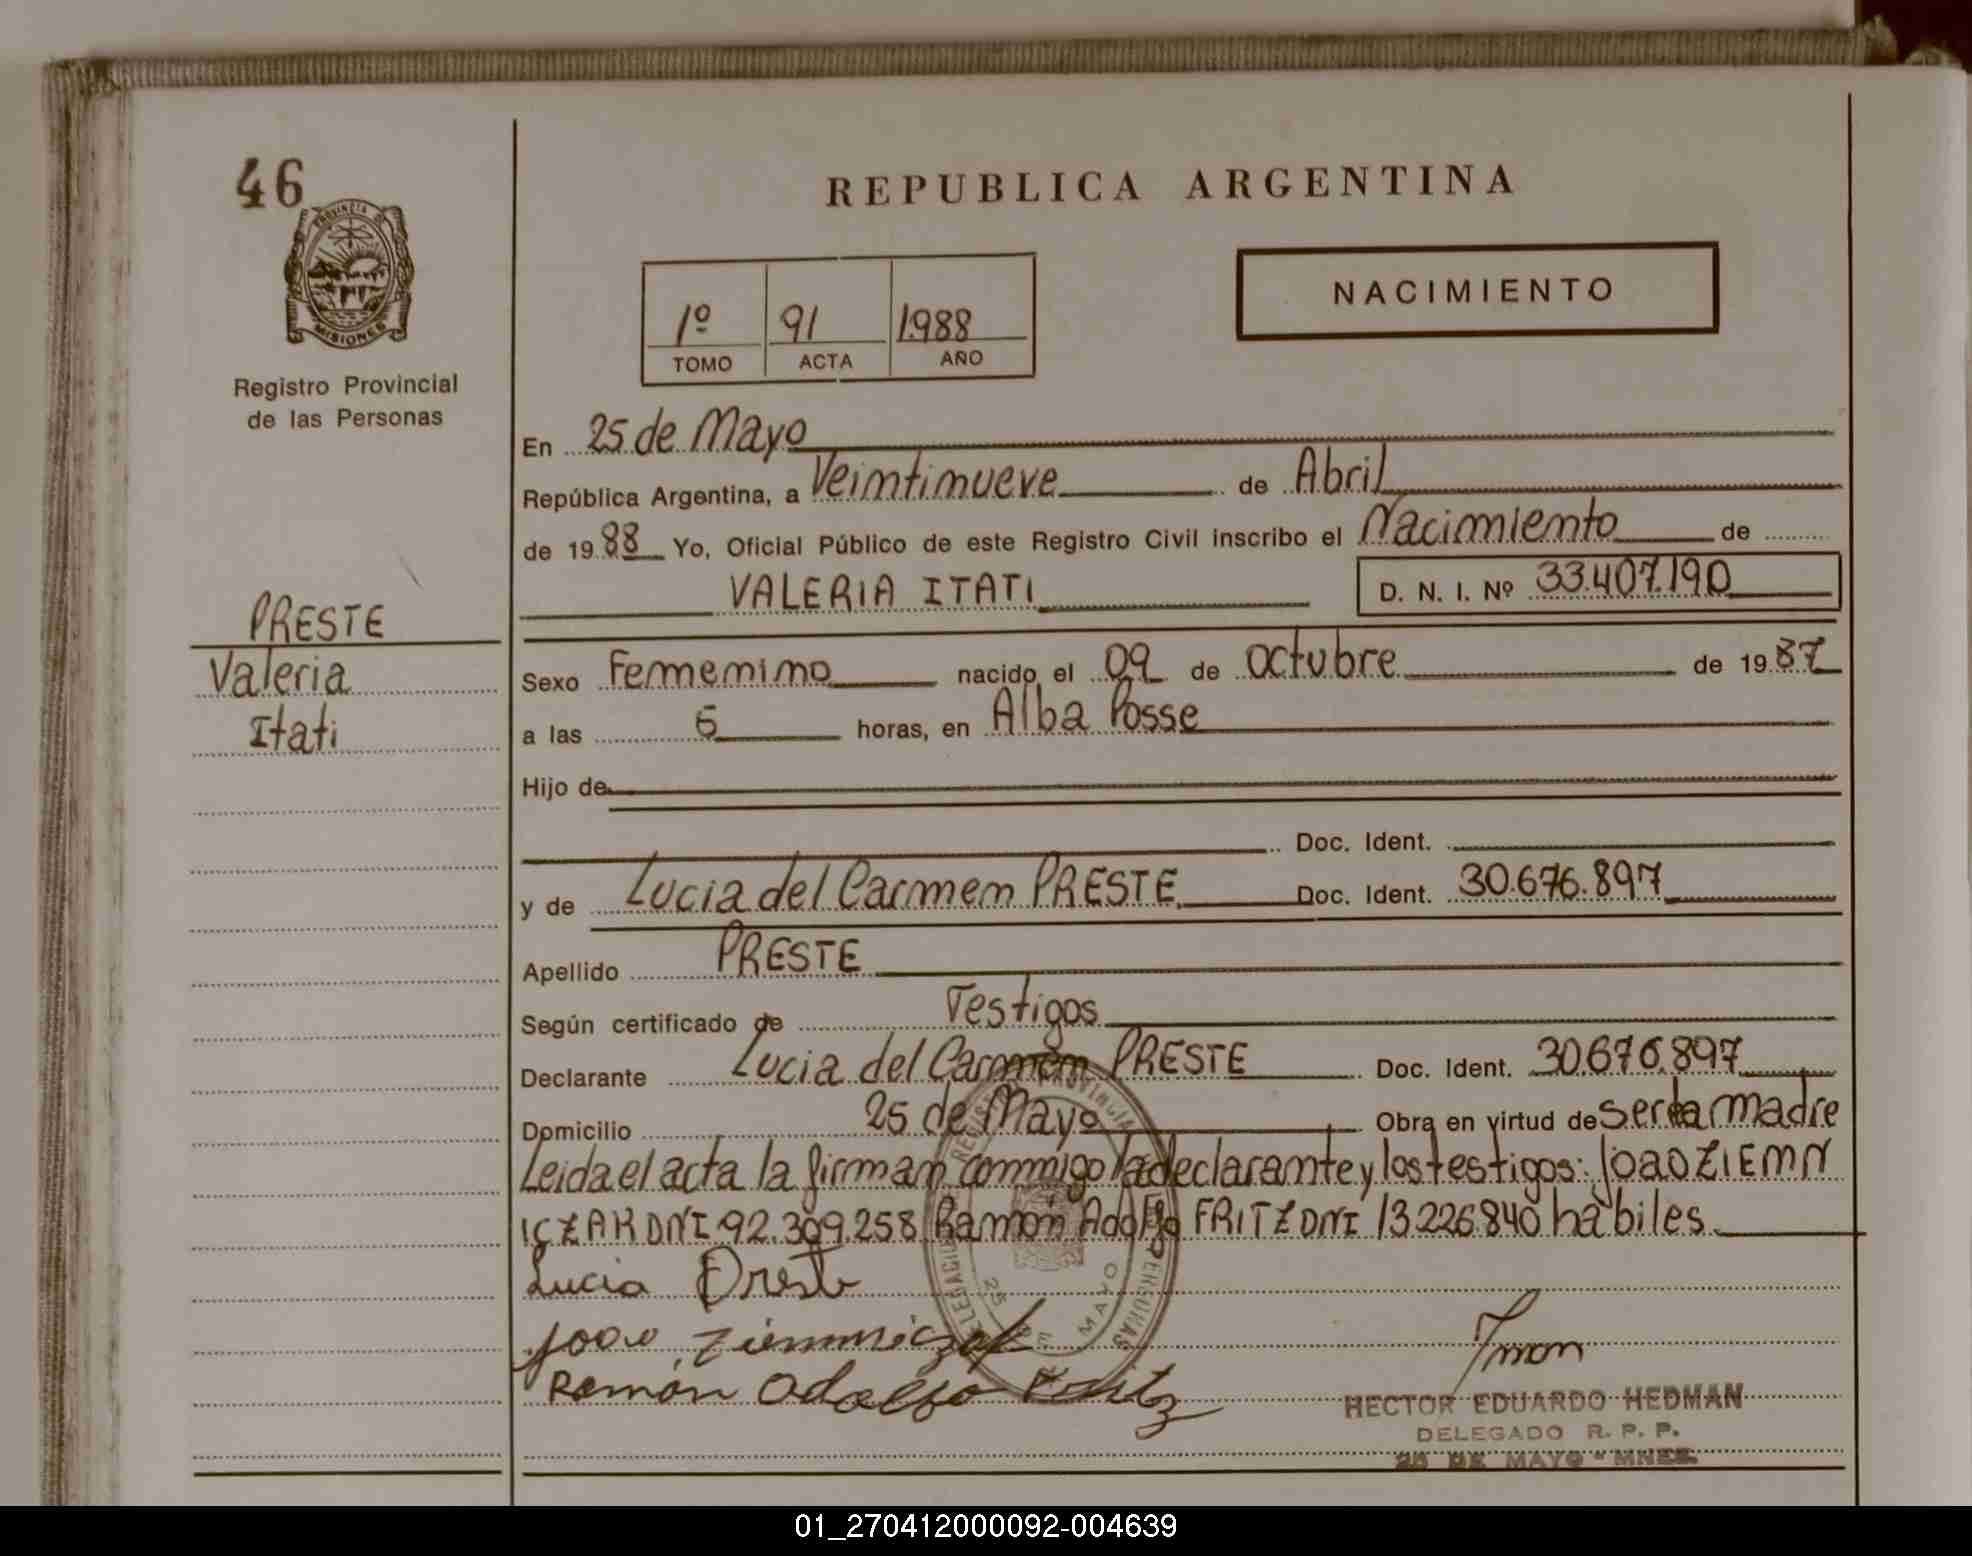 46
PROVINCIA DE
MISIONES
Registro Provincial
de las Personas
PRESTE
Valeria
Itati
REPUBLICA ARGENTINA
1º 91 1.988
TOMO ACTA AÑO
NACIMIENTO
En 25 de Mayo
República Argentina, a Veintinueve de Abril
de 19 88 Yo, Oficial Público de este Registro Civil inscribo el Nacimiento de
VALERIA ITATI D. N. I. Nº 33.407.190
Sexo Femenino nacido el 09 de Octubre de 19 87
a las 6 horas, en Alba Posse
Hijo de
Doc. Ident.
y de Lucia del Carmen PRESTE Doc. Ident. 30.676.897
Apellido PRESTE
Según certificado de Testigos
Declarante Lucia del Carmen PRESTE Doc. Ident. 30.676.897
Domicilio 25 de Mayo Obra en virtud de ser la madre
Leida el acta la firman conmigo la declarante y los testigos: JOAO ZIEMN
ICZAK DNI 92.309.258 Ramón Adolfo FRITZ DNI 13.226.840 habiles.
Lucia Preste
Joao Ziemniczak
Ramón Adolfo Fritz
HECTOR EDUARDO HEDMAN
DELEGADO R. P. P.
25 DE MAYO - MNES.
01_270412000092-004639